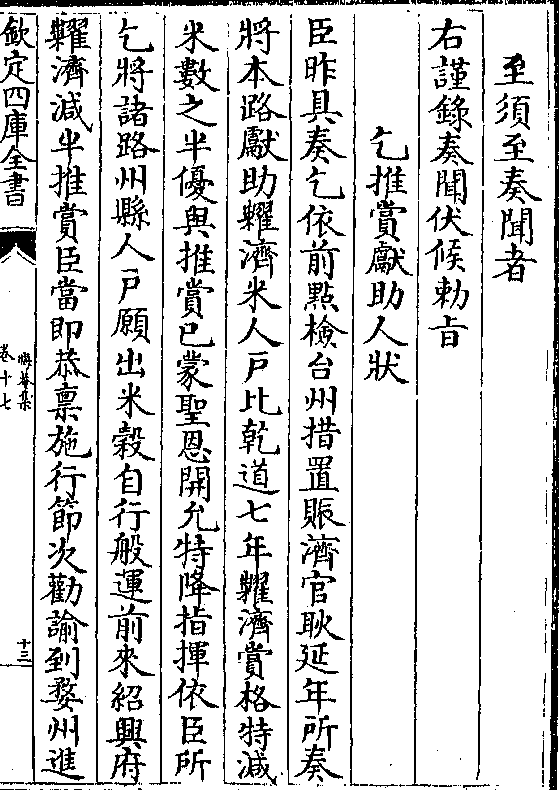 至須至奏聞者
右謹錄奏聞伏候勅旨
乞推賞獻助人狀
臣昨具奏乞依前點檢台州措置賑濟官耿延年所奏
將本路獻助糶濟米人戸比乾道七年糶濟賞格特減
米數之半優與推賞已蒙聖恩開允特降指揮依臣所
乞將諸路州縣人戸願出米穀自行般運前來紹興府
糶濟減半推賞臣當即恭禀施行節次勸諭到婺州進
欽定四庫全書
晦菴集
卷十七
十三